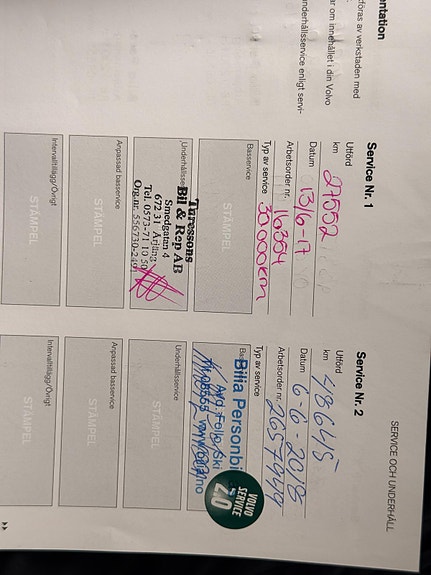 ntation
tföras av verkstaden med
ar om innehållet i din Volvo
nderhållsservice enligt servi-
SERVICE OCH UNDERHÅLL
Service Nr. 1
Utförd
km 27552
Datum 13/6-17
Arbetsorder nr. 116354
Typ av service 30000km
Basservice
STÄMPEL
Underhållsse
Turessons
Bil & Rep AB
Smedgatan 4
672 31 Årjäng
Tel. 0573-71 10 50
Org.nr. 556730-249
Anpassad basservice
STÄMPEL
Intervalltillägg/Övrigt
STÄMPEL
Service Nr. 2
Utförd
km 48645
Datum 6/6-2018
Arbetsorder nr. 2657949
Typ av service
Bas
Bilia Personbi
Avd. Follo/Ski
VOLVO
SERVICE
2.0
Underhållsservice
STÄMPEL
Anpassad basservice
STÄMPEL
Intervalltillägg/Övrigt
STÄMPEL